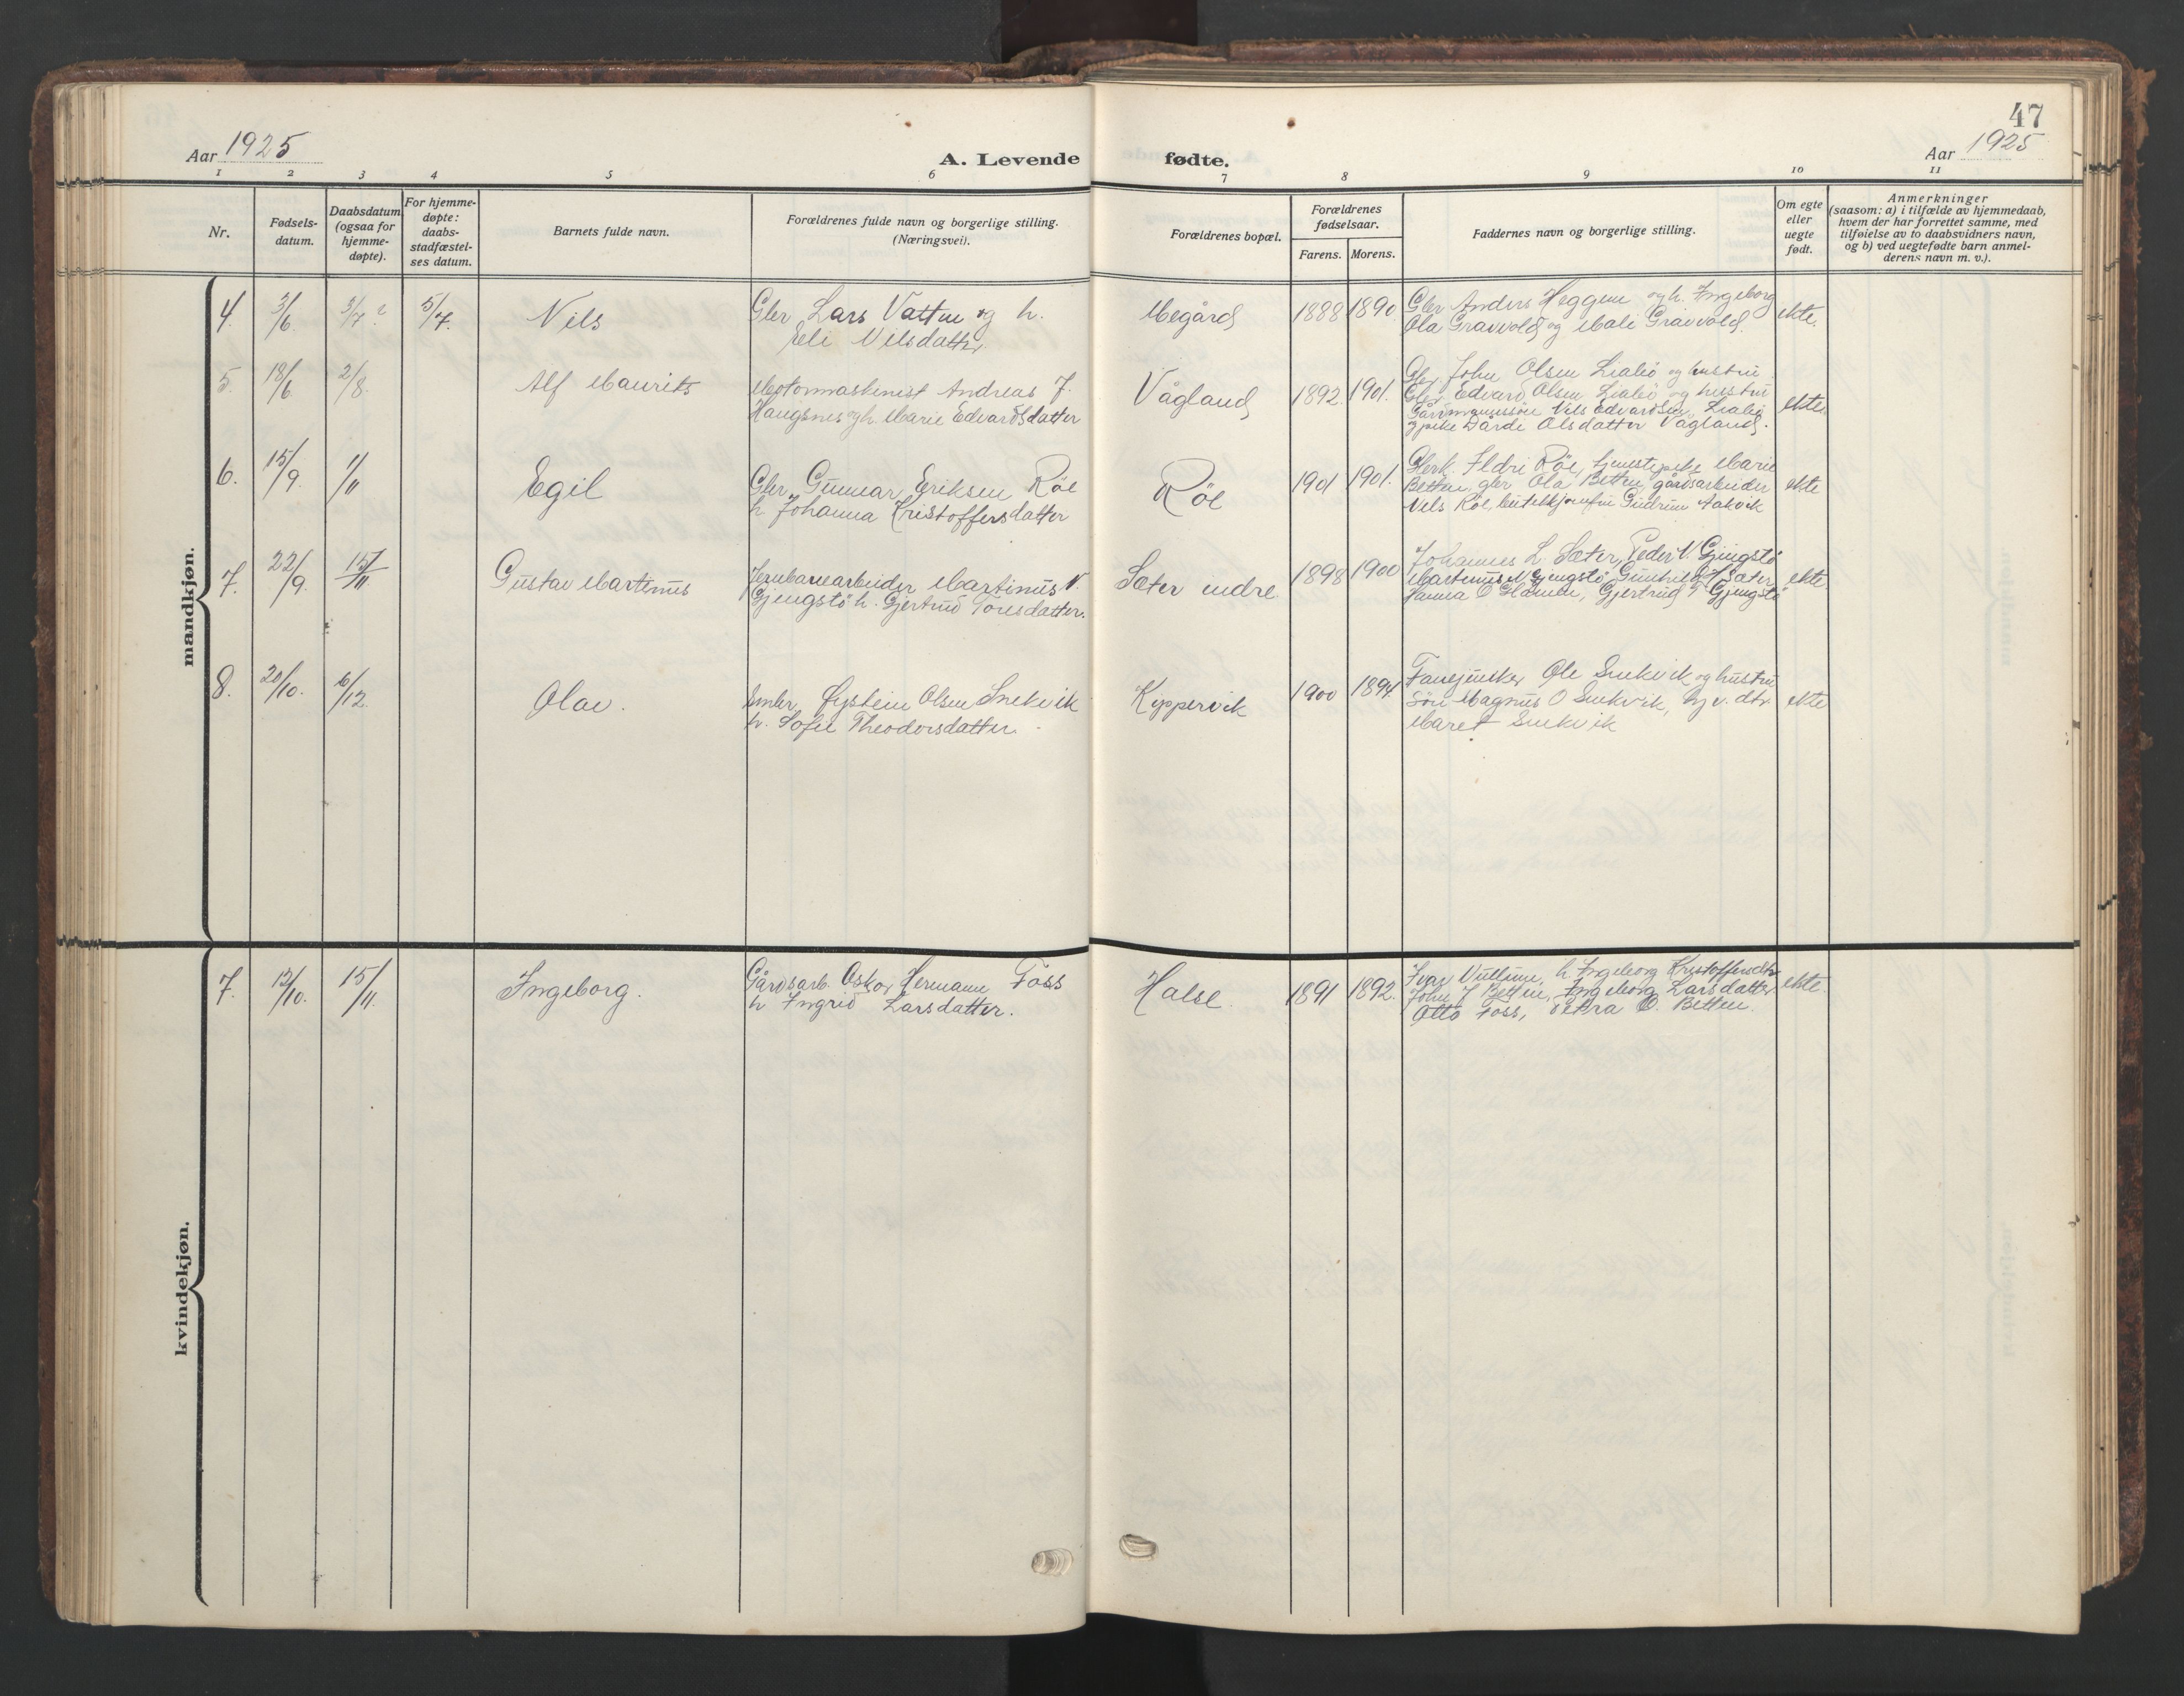 47
Aar 1925
A. Levende fødte.
Aar 1925
1 2 3 4 5 6 7 8 9 10 11
Nr.
Fødsels-
datum.
Daabsdatum
(ogsaa for
hjemme-
døpte).
For hjemme-
døpte:
daabs-
stadfæstel-
ses datum.
Barnets fulde navn.
Forældrenes fulde navn og borgerlige stilling.
(Næringsvei).
Forældrenes bopæl.
Forældrenes
fødselsaar.
Farens. Morens.
Faddernes navn og borgerlige stilling.
Om egte
eller
uegte
født.
Anmerkninger
(saasom: a) i tilfælde av hjemmedaab,
hvem der har forrettet samme, med
tilføielse av to daabsvidners navn,
og b) ved uegtefødte barn anmel-
derens navn m. v.).
mandkjøn.
4. 3/6 3/7? 5/7. Nils
Gbr Lars Vatten og h.
Eli Nilsdatter
Megård 1888 1890
Gbr Anders Heggem og h. Ingeborg
Ola Gravvold og Mali Gravvold.
ekte.
5. 18/6. 2/8. Alf Maurits
Motormaskinist Andreas J.
Haugsnes og h. Marie Edvardsdatter
Vågland 1892. 1901.
Gbr John Olsen Liabö og hustru
Gbr Edvard Olsen Liabö og hustru
Gårdmannssön Nils Edvardsen Liabö
og pike Dårdi Olsdatter Vågland.
ekte
6. 15/9. 1/11 Egil
Gbr Gunnar Eriksen Röe
h. Johanna Kristoffersdatter
Röe 1901 1901.
Gbrk. Ildri Röe, tjenestepike Marie
Betten, gbr Ola Betten, gårdsarbeider
Nils Röe, Gudrun Aakvik
ekte
7. 22/9. 15/11 Gustav Martinus
Jernbanearbeider Martinus N.
Gjengstö h. Gjertrud Toresdatter.
Sæter indre 1898 1900
Johannes L. Sæter, Peder N. Gjengstö
Martinus N Gjengstö, Gunhild Sæter
Hanna O Glåmen, Gjertrud T Gjengstö
ekte.
8. 20/10. 6/12. Olav.
Småbr. Øystein Olsen Snekvik
h. Sofie Theodorsdatter.
Kippervik 1900 1894
Fanejunker Ole Snekvik og hustru
Sön Magnus O Snekvik, hj.v. dtr.
Maret Snekvik
ekte
kvindekjøn.
7. 12/10. 15/11. Ingeborg.
Gårdsarb. Oskar Hermann Foss
h Ingrid Larsdatter.
Halse. 1891 1892.
Ivar Vullum, h. Ingeborg Kristoffersdtr
John J Betten, Ingeborg Larsdatter
Otto Foss, Petra O. Betten.
ekte.